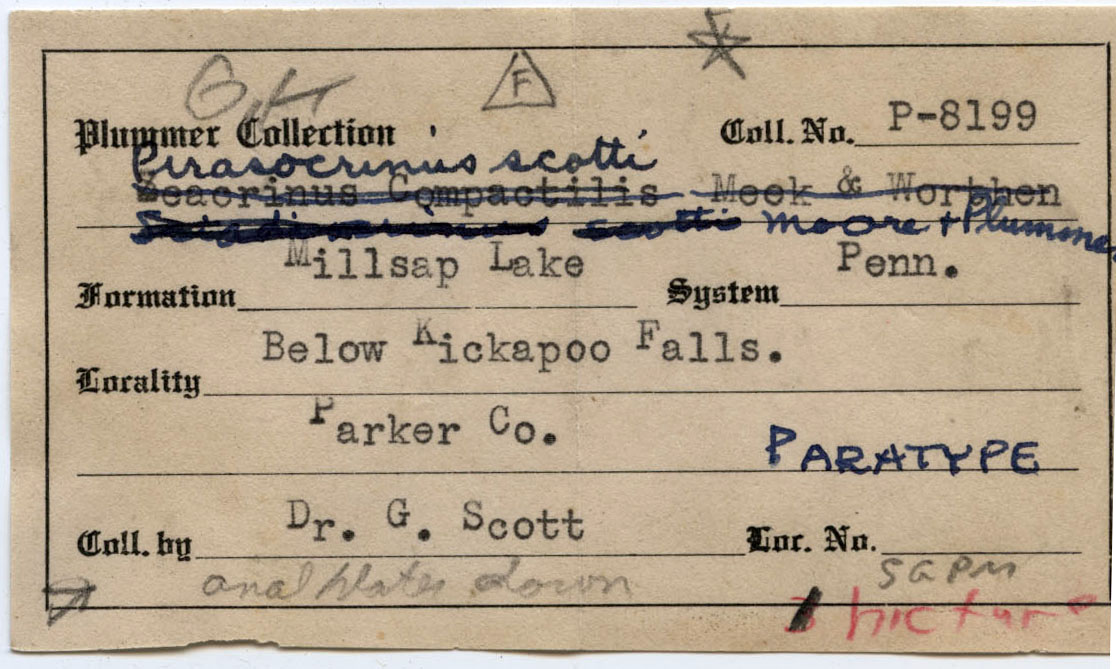 O.K. F
Plummer Collection Coll. No. P-8199
Perasocrinus scotti
Zeacrinus Compactilis Meek & Worthen
scotti Moore + Plummer
Millsap Lake Penn.
Formation System
Below Kickapoo Falls.
Locality
Parker Co.
PARATYPE
Dr. G. Scott
Coll. by Loc. No.
anal plates down SGPM
picture